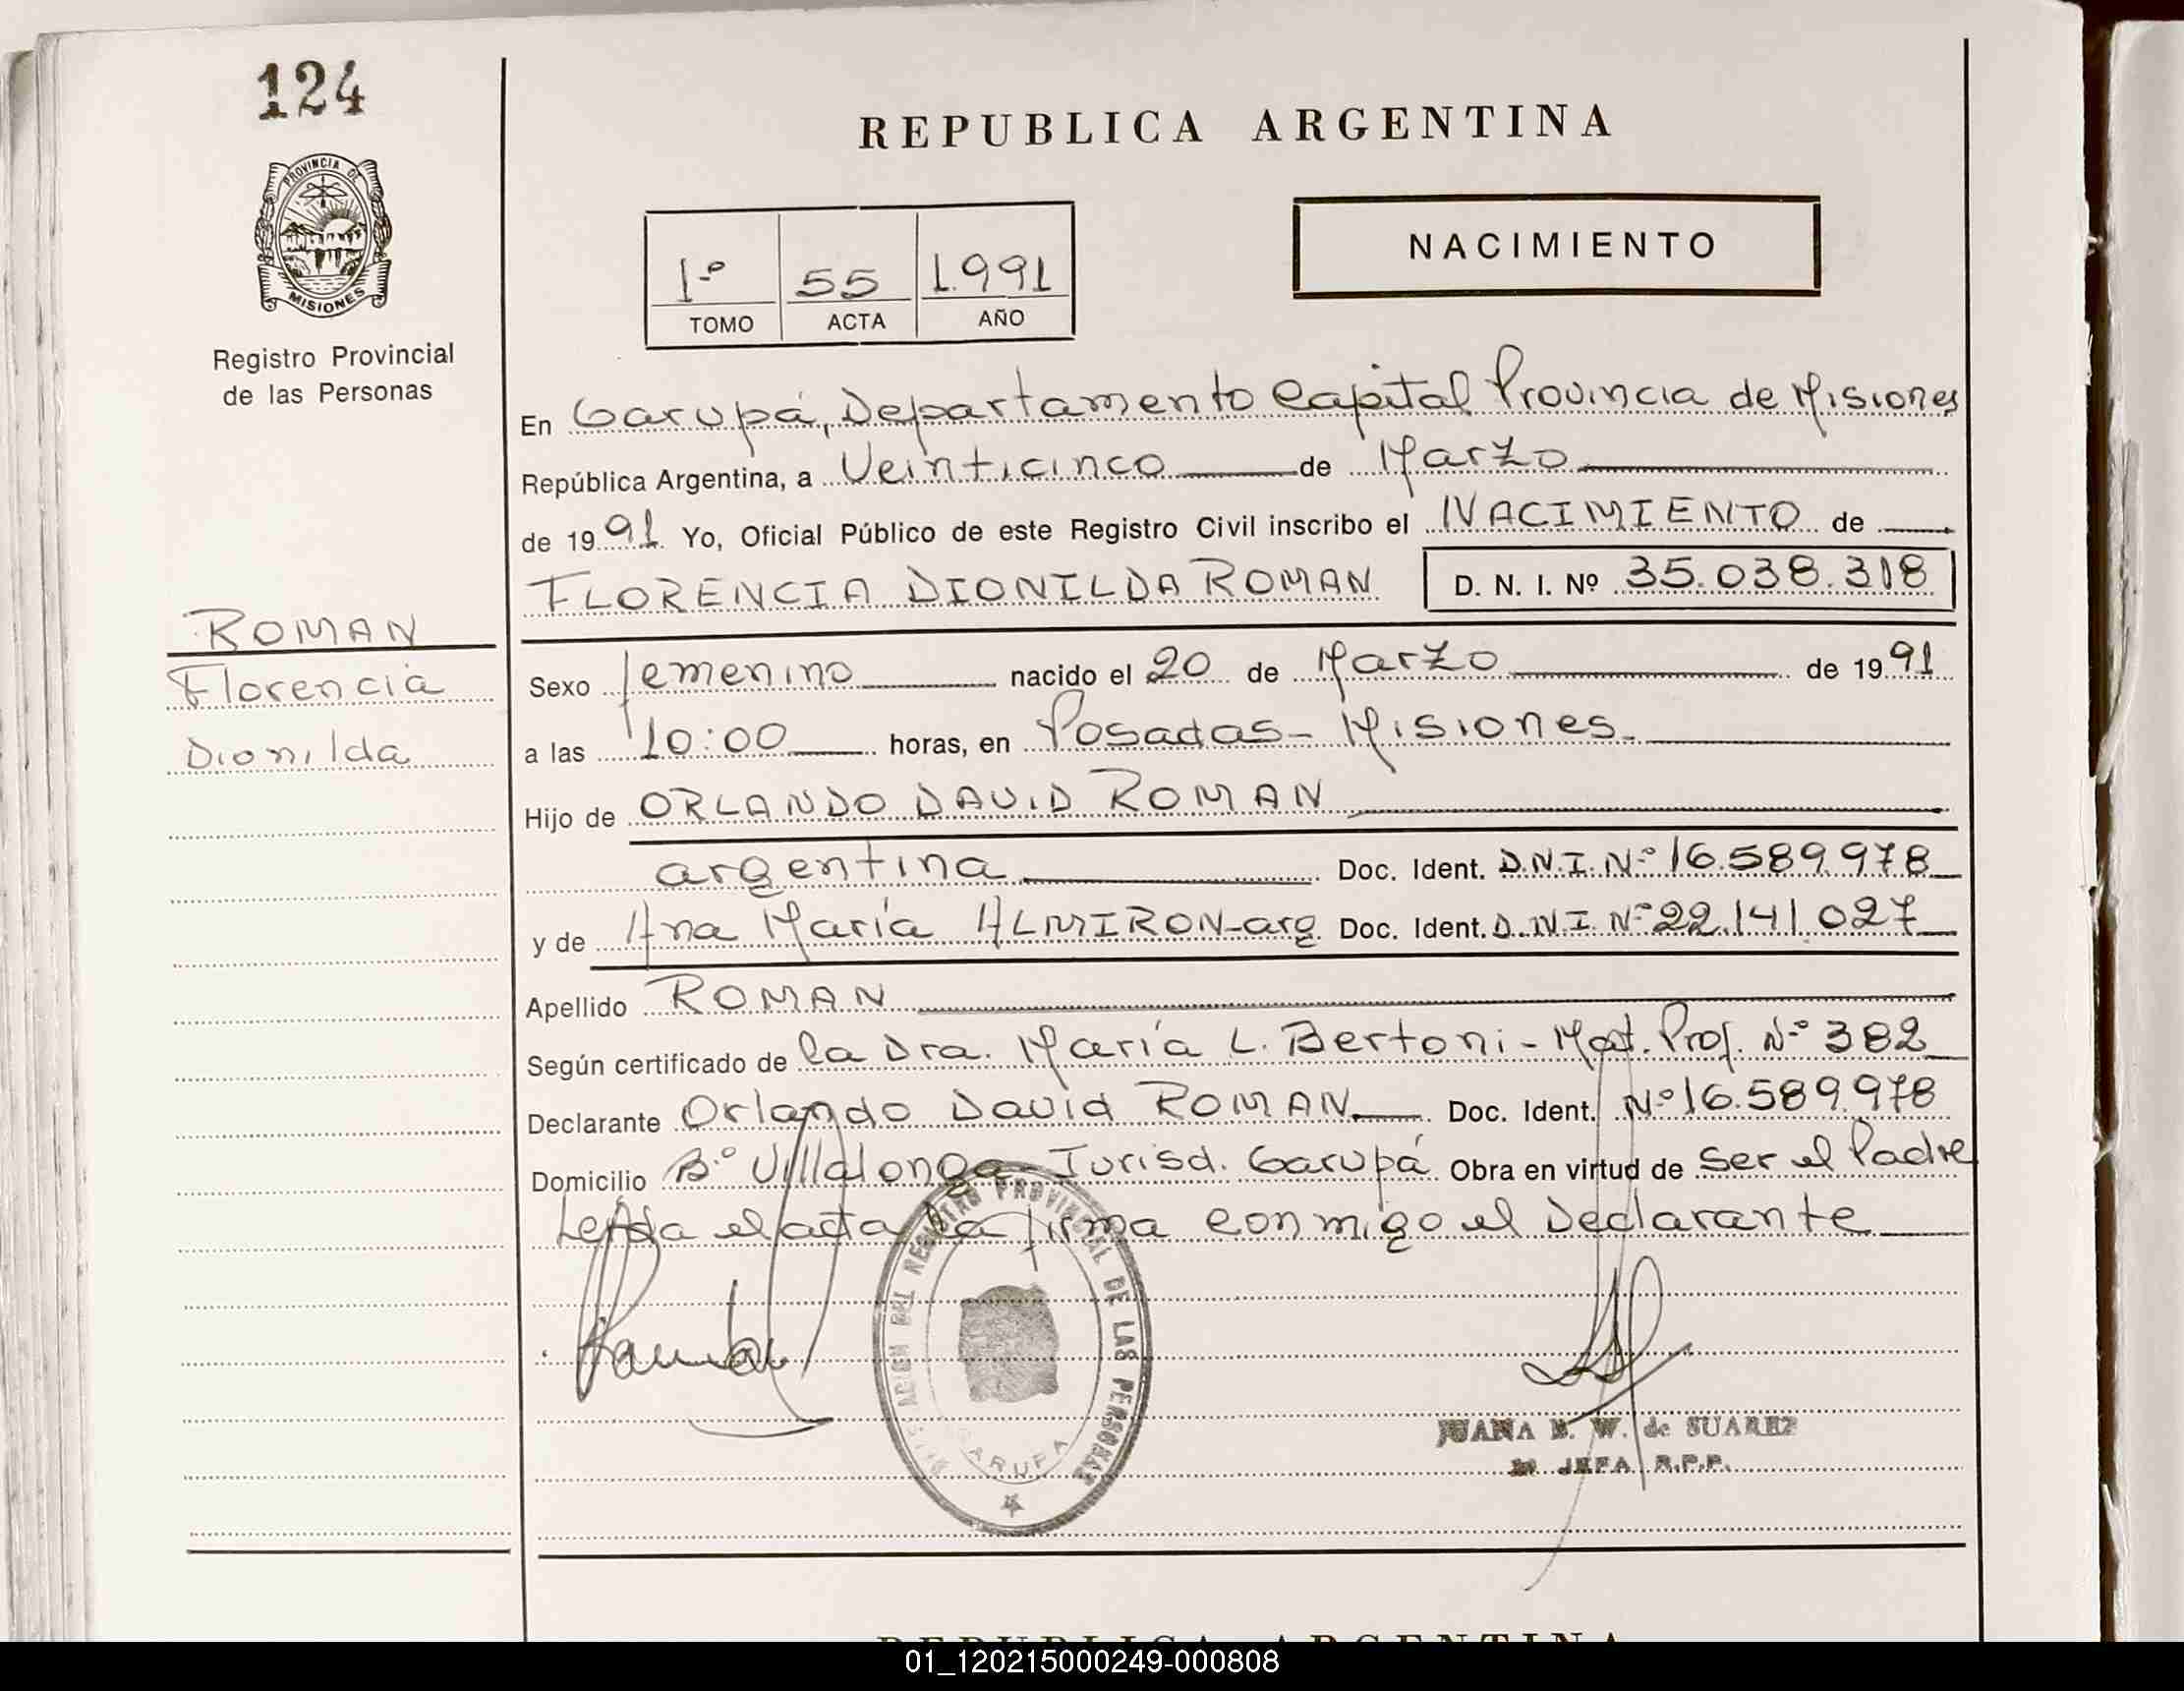 124
PROVINCIA DE
MISIONES
Registro Provincial
de las Personas
ROMAN
Florencia
Dionilda
REPUBLICA ARGENTINA
1º 55 1.991
TOMO ACTA AÑO
NACIMIENTO
En Garupá, Departamento Capital Provincia de Misiones
República Argentina, a Veinticinco de Marzo
de 1991 Yo, Oficial Público de este Registro Civil inscribo el NACIMIENTO de
FLORENCIA DIONILDA ROMAN D. N. I. Nº 35.038.318
Sexo femenino nacido el 20 de Marzo de 1991
a las 10:00 horas, en Posadas - Misiones.
Hijo de ORLANDO DAVID ROMAN
argentina Doc. Ident. D.N.I. Nº 16.589.978
y de Ana María ALMIRON-arg. Doc. Ident. D.N.I. Nº 22.141.027
Apellido ROMAN
Según certificado de la Dra. María L. Bertoni - Mat. Prof. Nº 382
Declarante Orlando David ROMAN Doc. Ident. Nº 16.589.978
Domicilio Bº Villalonga - Jurisd. Garupá Obra en virtud de ser el Padre
Leída el acta la firma conmigo el Declarante
PROVINCIAL DE LAS PERSONAS
GARUPA
JUANA W. de SUAREZ
JEFA R.P.P.
REPUBLICA ARGENTINA
01_120215000249-000808